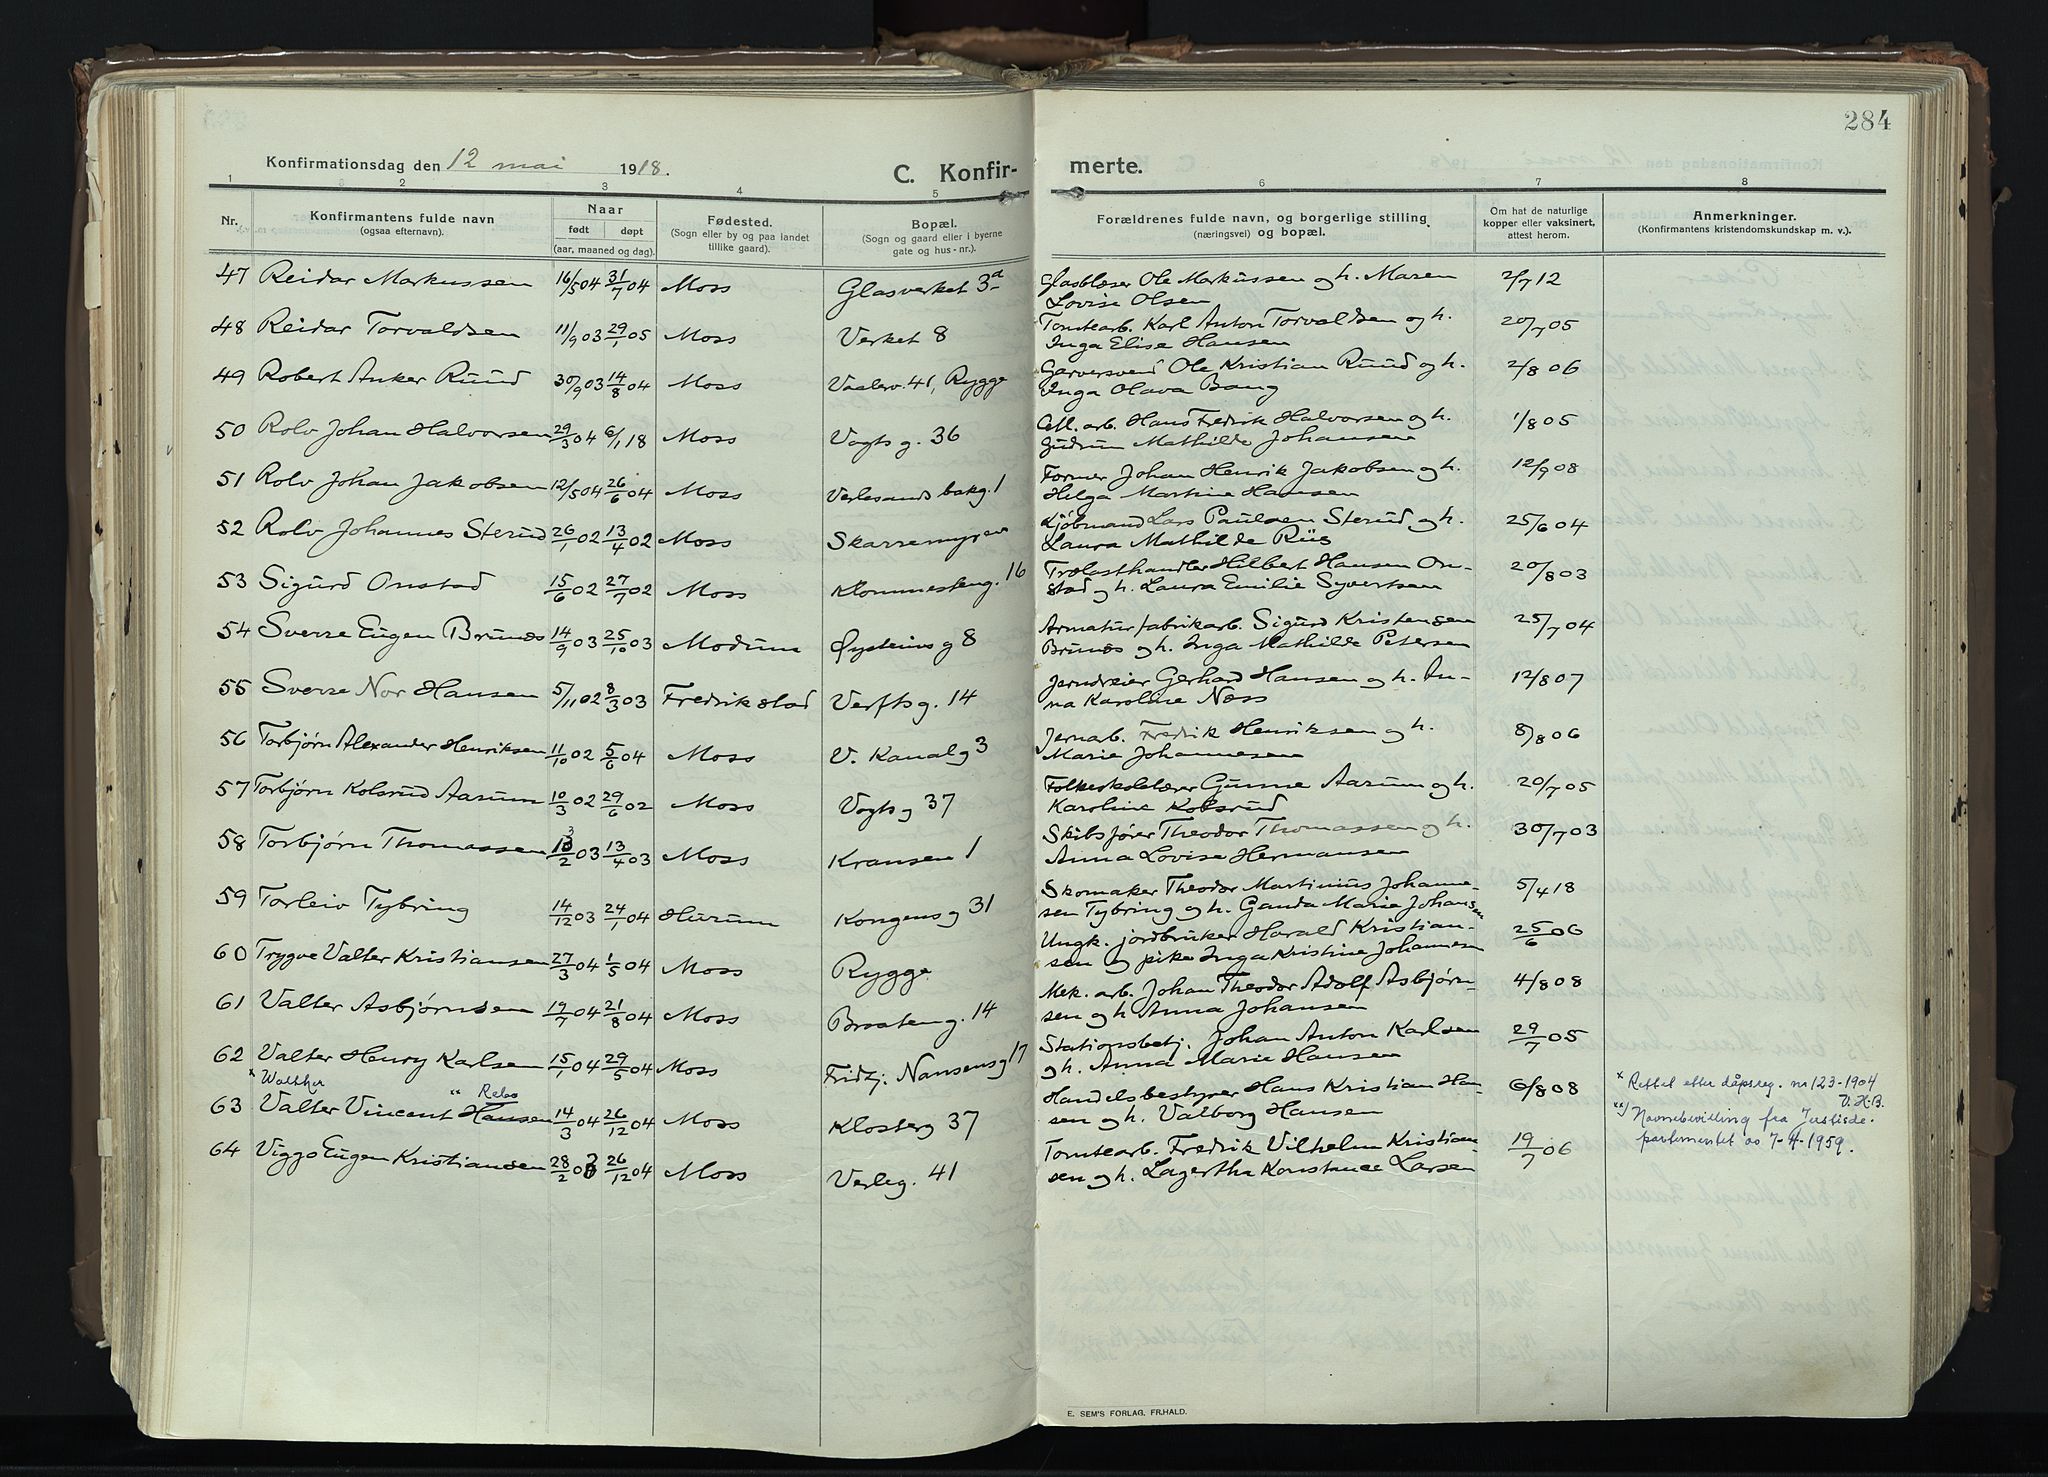 284
Konfirmationsdag den 12 mai 1918.
C. Konfir-
merte.
1 2 3 4 5 6 7 8
Nr. Konfirmantens fulde navn (ogsaa efternavn). Naar født døpt (aar, maaned og dag). Fødested. (Sogn eller by og paa landet tillike gaard). Bopæl. (Sogn og gaard eller i byerne gate og hus-nr.). Forældrenes fulde navn, og borgerlige stilling (næringsvei) og bopæl. Om hat de naturlige kopper eller vaksinert, attest herom. Anmerkninger. (Konfirmantens kristendomskundskap m. v.).
47 Reidar Markussen 16/5 04 31/7 04 Moss Glasverket 3a Glasblæser Ole Markussen og h. Maren 2/7 12
Lovise Olsen
48 Reidar Torvaldsen 11/9 03 29/1 05 Moss Verket 8 Tomtearb. Karl Anton Torvaldsen og h. 20/7 05
Inga Elise Hansen
49 Robert Anker Ruud 30/9 03 14/8 04 Moss Vaalerv. 41, Rygge Garversvend Ole Kristian Ruud og h. 2/8 06
Inga Olava Bang
50 Rolv Johan Halvorsen 29/3 04 6/1 18 Moss Vogts g. 36 Cell. arb. Hans Fredrik Halvorsen og h. 1/8 05
Gudrun Mathilde Johansen
51 Rolv Johan Jakobsen 12/5 04 26/6 04 Moss Verlesands bakg. 1 Former Johan Henrik Jakobsen og h. 12/9 08
Helga Martine Hansen
52 Rolv Johannes Sterud 26/1 02 13/4 02 Moss Skarremyren Kjøbmand Lars Paulsen Sterud og h. 25/6 04
Laura Mathilde Riis
53 Sigurd Onstad 15/6 02 27/7 02 Moss Klommesteng. 16 Trælasthandler Hilbert Hansen On- 20/8 03
stad og h. Laura Emilie Syvertsen
54 Sverre Eugen Brunæs 14/9 03 25/10 03 Modum Øysteins g 8 Armaturfabrikarb. Sigurd Kristensen 25/7 04
Brunæs og h. Inga Mathilde Petersen
55 Sverre Nor Hansen 5/11 02 8/3 03 Fredrikstad Verftsg. 14 Jerndreier Gerhard Hansen og h. An- 12/8 07
na Karoline Næss
56 Torbjørn Alexander Henriksen 11/10 02 5/6 04 Moss V. Kanalg 3 Jernarb. Fredrik Henriksen og h. 8/8 06
Marie Johannesen
57 Torbjørn Kolsrud Aarum 10/3 02 29/6 02 Moss Vogts g 37 Folkeskolelærer Gunne Aarum og h. 20/7 05
Karoline Kolsrud
58 Torbjørn Thomassen 13/2 03 13/4 03 Moss Kransen 1 Skibsfører Theodor Thomassen og h. 30/7 03
Anna Lovise Hermansen
59 Torleiv Tybring 14/12 03 24/1 04 Hurum Kongens g 31 Skomaker Theodor Martinius Johanne- 5/4 18
sen Tybring og h. Ganda Marie Johansen
60 Trygve Valter Kristiansen 27/3 04 1/5 04 Moss Rygge Ungk. jordbruker Harald Kristian- 25/6 06
sen og pike Inga Kristine Johannesen
61 Valter Asbjørnsen 19/7 04 21/8 04 Moss Braaten g. 14 Mek. arb. Johan Theodor Adolf Asbjørn- 4/8 08
sen og h Anna Johansen
62 Valter Henry Karlsen 15/1 04 29/5 04 Moss Fridtj. Nansens g 17 Stationsbetj. Johan Anton Karlsen 29/7 05
og h. Anna Marie Hansen
* Walther ** Rebo
63 Valter Vincent Hansen 14/3 04 26/12 04 Moss Klosterg 37 Handelsbestyrer Hans Kristian Han- 6/8 08
sen og h. Valborg Hansen
* Rettet etter dåpsreg. nr 123-1904
V.H.B.
**) Navnebevilling fra Justisde-
partementet av 7-4-1959.
64 Viggo Eugen Kristiansen 28/2 03 26/12 04 Moss Verleg. 41 Tomtearb. Fredrik Vilhelm Kristian- 19/7 06
sen og h. Lagertha Konstance Larsen
E. SEM'S FORLAG, FR.HALD.